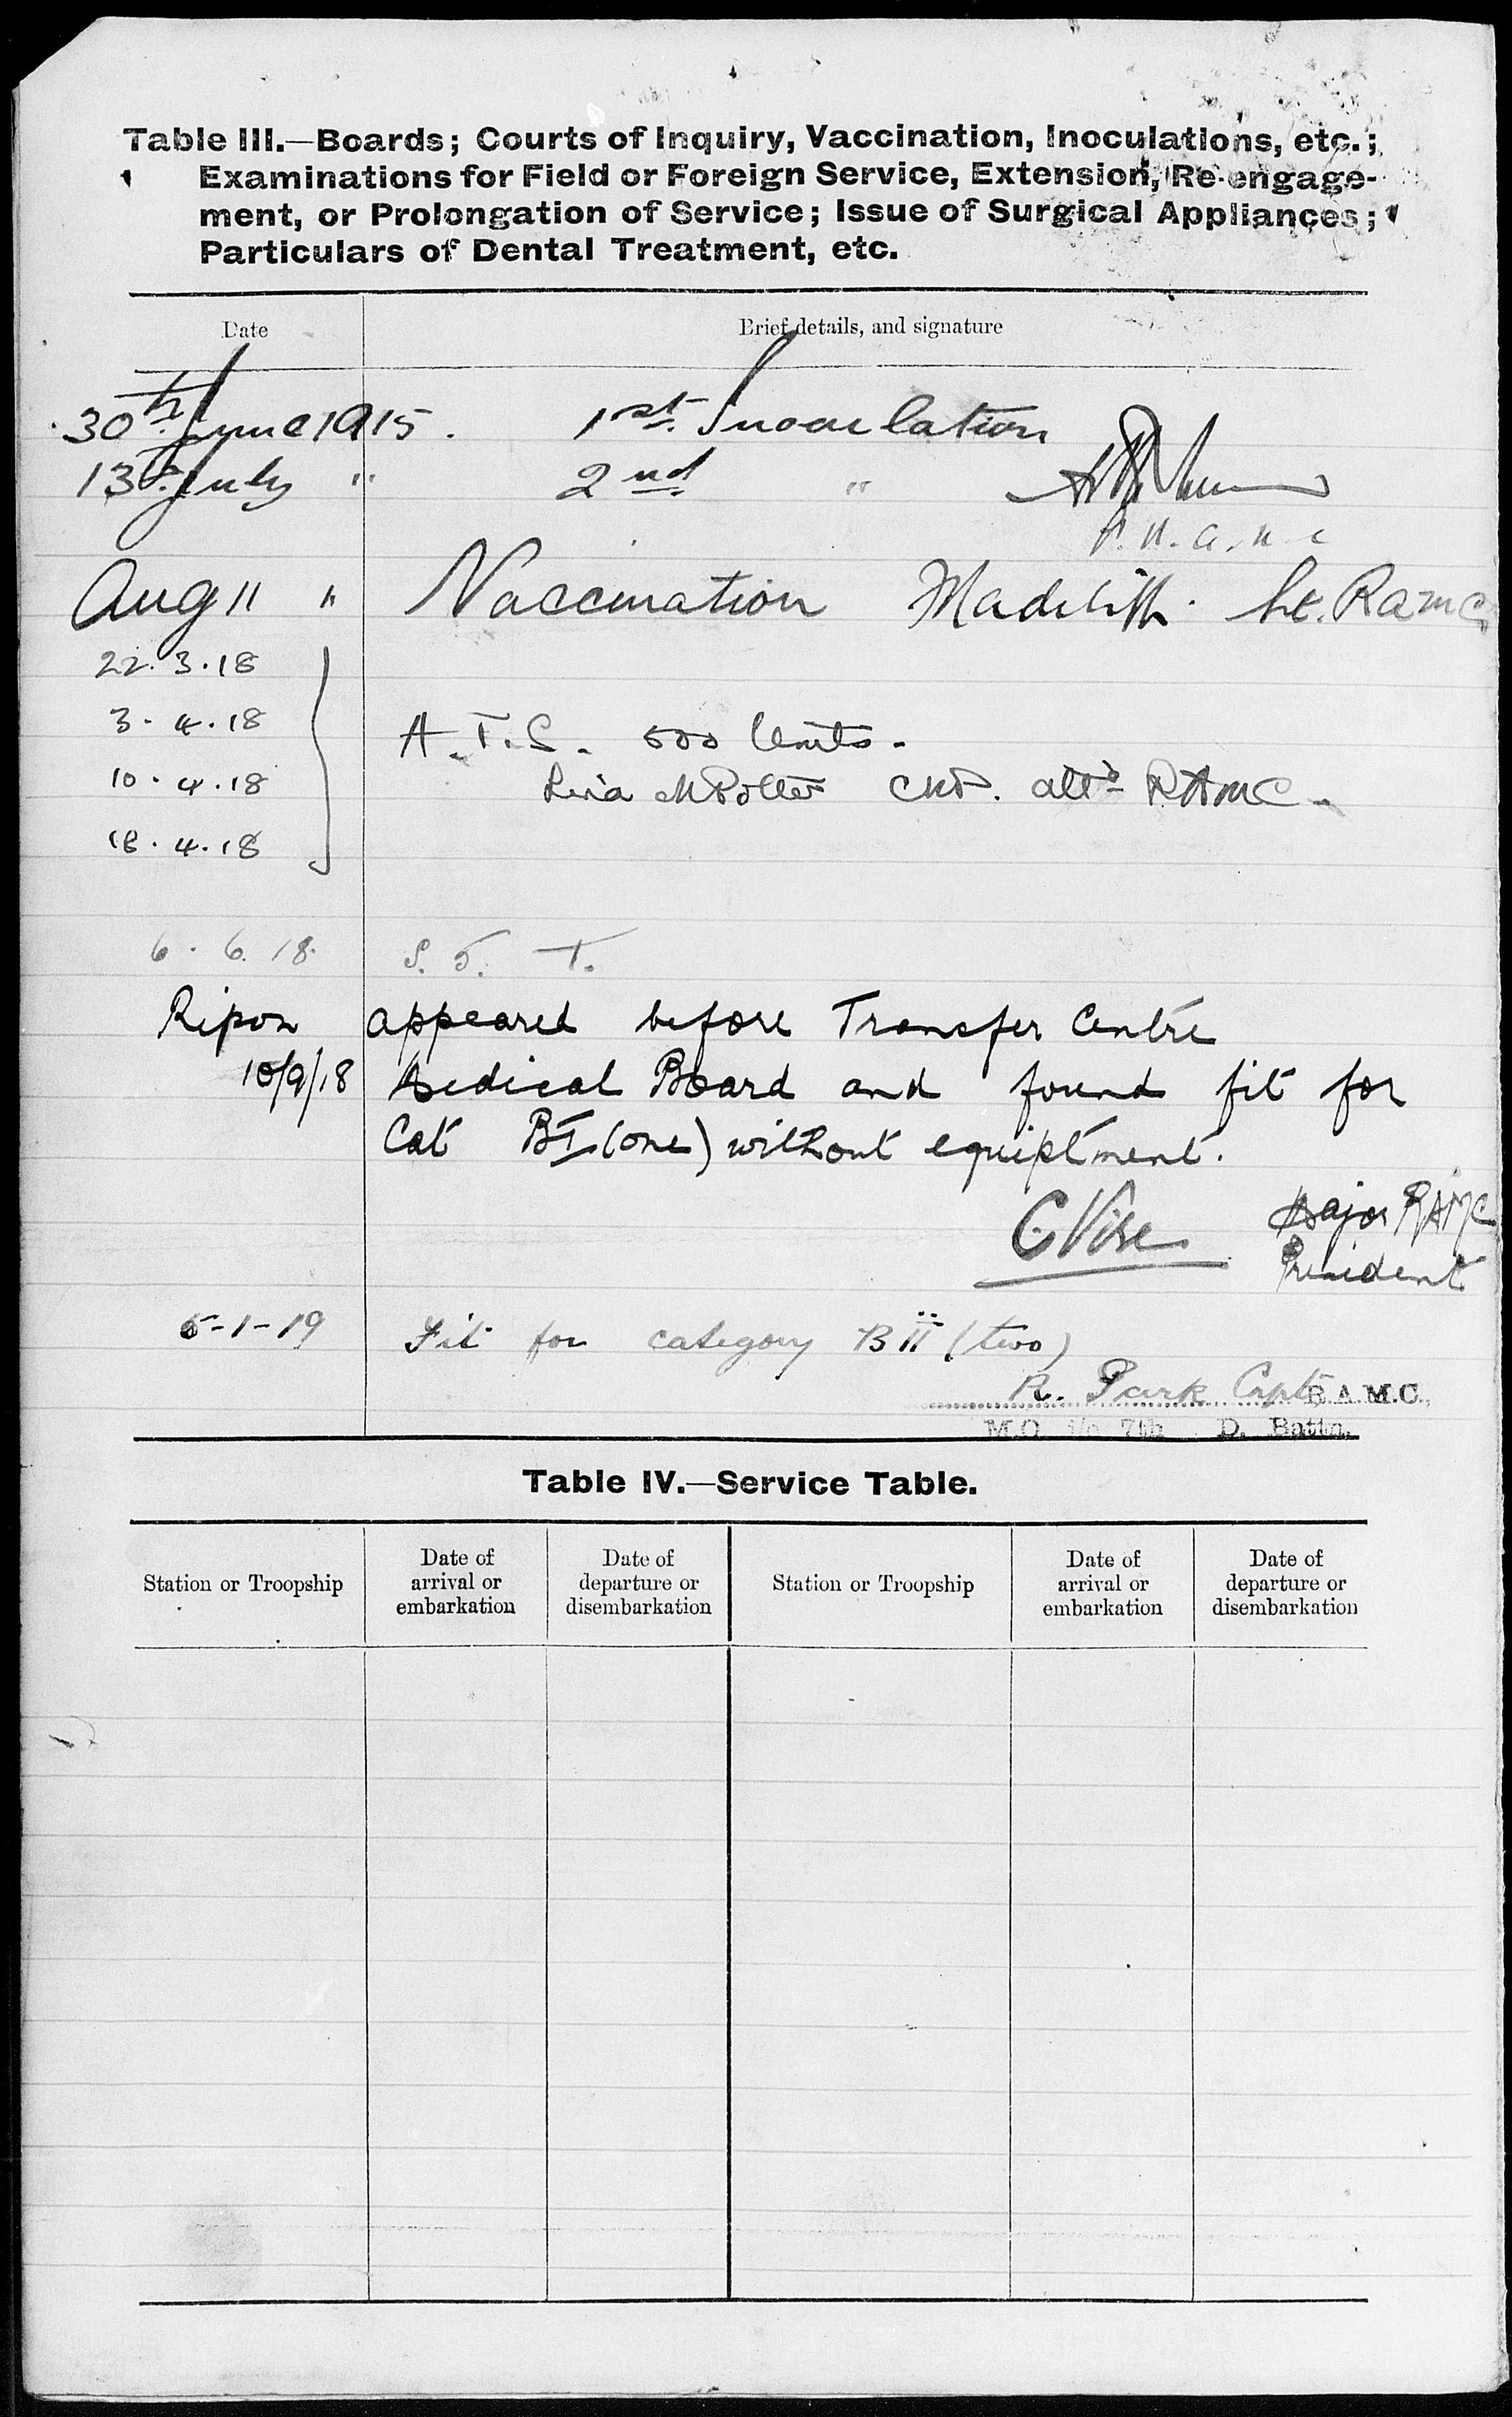 Table III.—Boards; Courts of Inquiry, Vaccination, Inoculations, etc.;
Examinations for Field or Foreign Service, Extension, Re-engage-
ment, or Prolongation of Service; Issue of Surgical Appliances;
Particulars of Dental Treatment, etc.
Date Brief details, and signature
30th June 1915. 1st Inoculation
13th July " 2nd "
Aug 11 " Vaccination Lt. RAMC
22.3.18
3.4.18
A.T.S. 500 Units.
10.4.18 attd RAMC.
18.4.18
6.6.18. S. 5. T.
Ripon appeared before Transfer Centre
10/9/18 Medical Board and found fit for
Cat BI (one) without equiptment.
C Vise Major RAMC
President
5-1-19 Fit for category B II (two)
R. Park Capt R.A.M.C.,
M.O. i/c 7th D. Battn.
Table IV.—Service Table.
Station or Troopship Date of arrival or embarkation Date of departure or disembarkation Station or Troopship Date of arrival or embarkation Date of departure or disembarkation